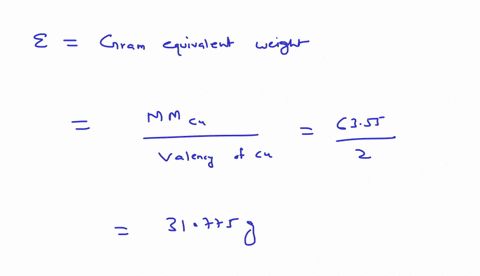 E = Gram equivalent weight
= MM Cu / Valency of Cu = 63.55 / 2
= 31.775 g